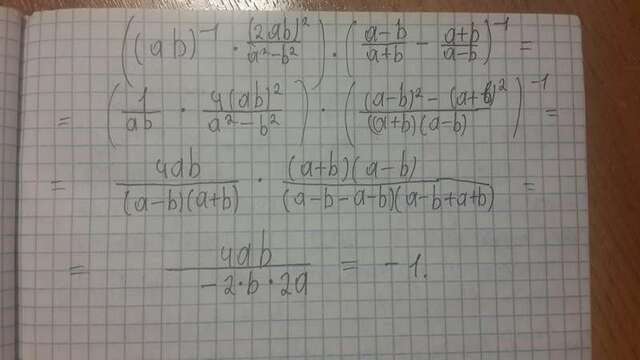 ((ab)⁻¹ · (2ab)²/(a²-b²)) · ((a-b)/(a+b) - (a+b)/(a-b))⁻¹ =
= (1/(ab) · 4(ab)²/(a²-b²)) · (((a-b)² - (a+b)²)/((a+b)(a-b)))⁻¹ =
= 4ab/((a-b)(a+b)) · (a+b)(a-b)/((a-b-a-b)(a-b+a+b)) =
= 4ab/(-2·b·2a) = -1.